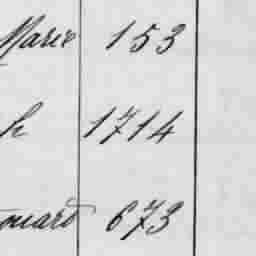 Marie 153
h 1714
ouard 673